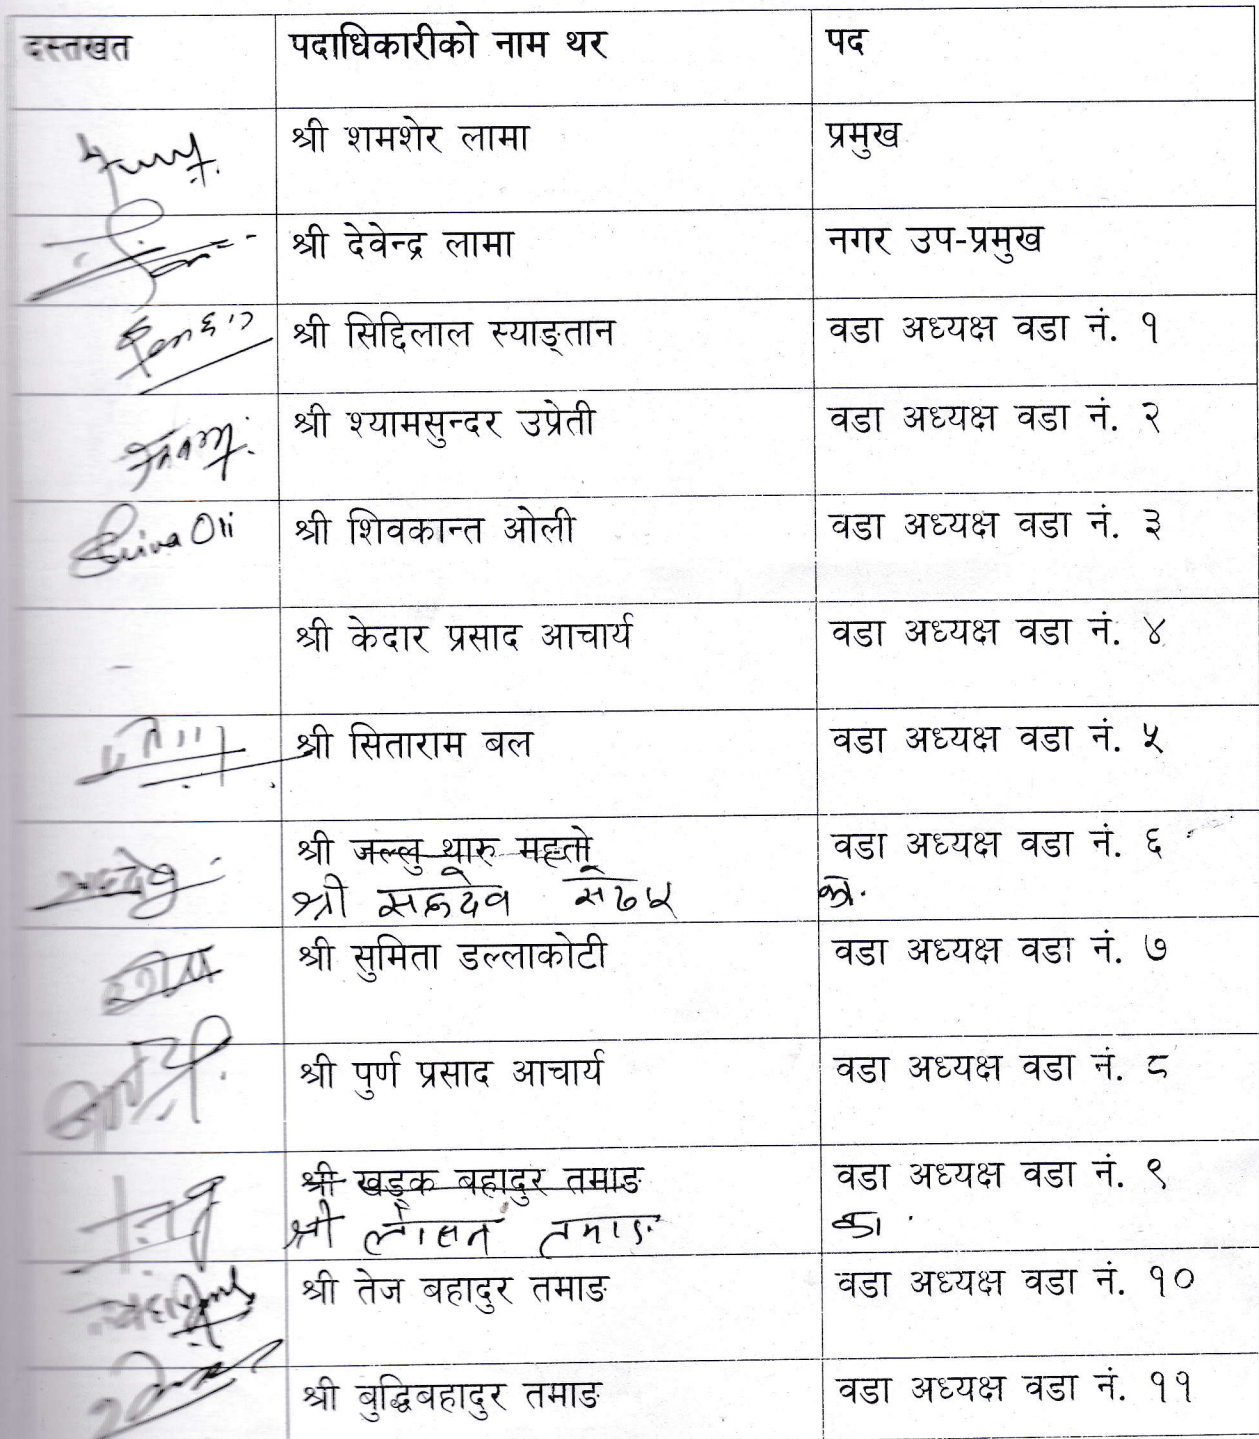 दस्तखत पदाधिकारीको नाम थर पद
श्री शमशेर लामा प्रमुख
श्री देवेन्द्र लामा नगर उप-प्रमुख
श्री सिद्दिलाल स्याङ्तान वडा अध्यक्ष वडा नं. १
श्री श्यामसुन्दर उप्रेती वडा अध्यक्ष वडा नं. २
Shiva Oli श्री शिवकान्त ओली वडा अध्यक्ष वडा नं. ३
श्री केदार प्रसाद आचार्य वडा अध्यक्ष वडा नं. ४
श्री सिताराम बल वडा अध्यक्ष वडा नं. ५
श्री जल्लु थारु महतो वडा अध्यक्ष वडा नं. ६
श्री सहदेव का.
श्री सुमिता डल्लाकोटी वडा अध्यक्ष वडा नं. ७
श्री पुर्ण प्रसाद आचार्य वडा अध्यक्ष वडा नं. ८
श्री खड्क बहादुर तमाङ वडा अध्यक्ष वडा नं. ९
श्री तमाङ का.
श्री तेज बहादुर तमाङ वडा अध्यक्ष वडा नं. १०
श्री बुद्धिबहादुर तमाङ वडा अध्यक्ष वडा नं. ११